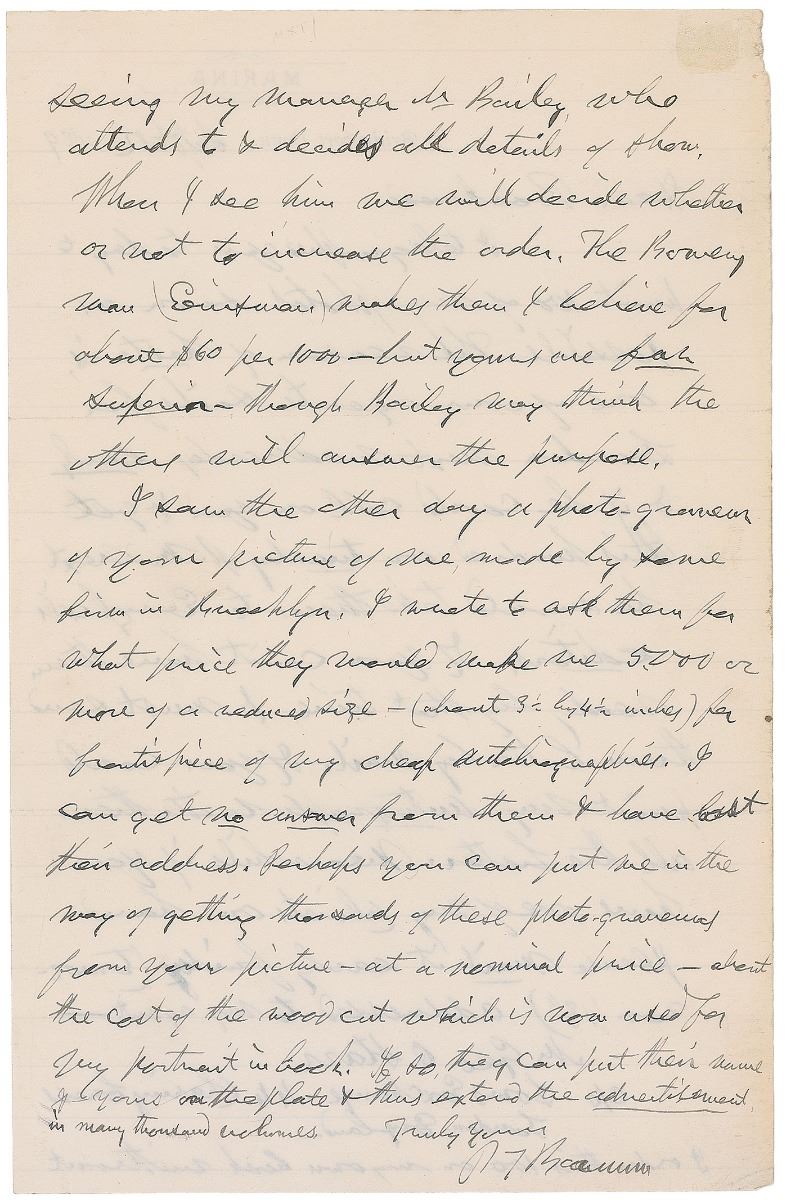 seeing my manager Mr Bailey, who
attends to & decides all details of show.
When I see him we will decide whether
or not to increase the order. The Bowery
man (Eintsman) makes them I believe for
about $60 per 1000 – but yours are far
superior – though Bailey may think the
others will answer the purpose.
I saw the other day a photo-graveur
of your picture of me, made by some
firm in Brooklyn. I wrote to ask them for
what price they would make me 5,000 or
more of a reduced size – (about 3½ by 4½ inches) for
frontispiece of my cheap autobiographies. I
can get no answer from them & have lost
their address. Perhaps you can put me in the
way of getting thousands of these photo-graveurs
from your picture – at a nominal price – about
the cost of the wood cut which is now used for
my portrait in book. If so, they can put their name
& yours on the plate & thus extend the advertisment
in many thousand volumes. Truly Yours
P T Barnum